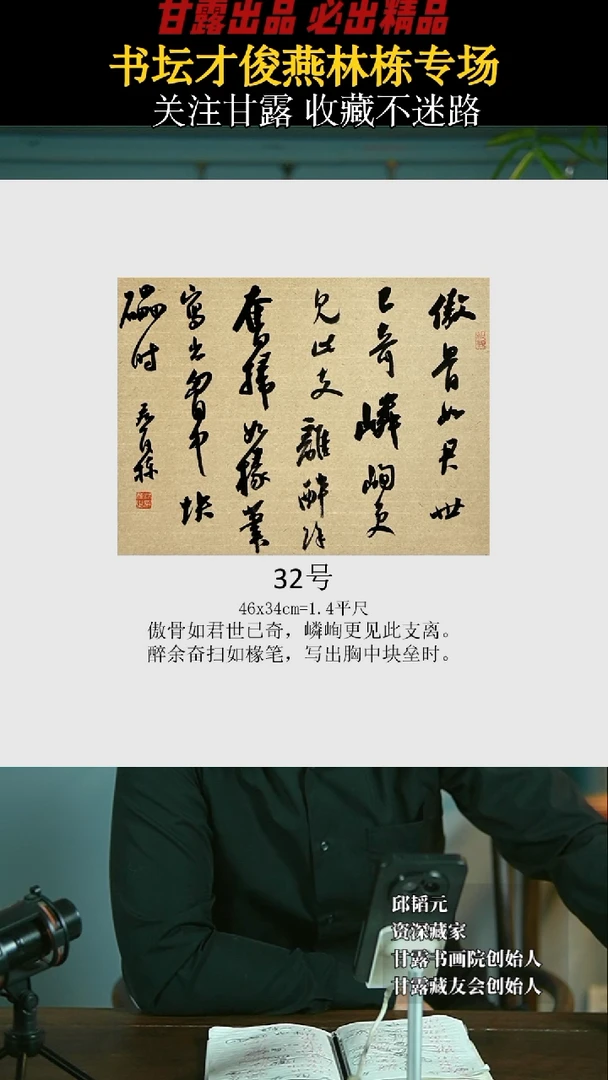 甘露出品 必出精品
书坛才俊燕林栋专场
关注甘露 收藏不迷路
傲骨如君世
已奇嶙峋更
见此支離醉餘
奮掃如椽筆
寫出胸中块
磊时
32号
46x34cm=1.4平尺
傲骨如君世已奇，嶙峋更见此支离。
醉余奋扫如椽笔，写出胸中块垒时。
邱韬元
资深藏家
甘露书画院创始人
甘露藏友会创始人